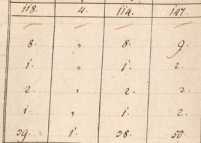 118. 4. 114. 147
8. " 8. 9.
1. " 1. 2.
2. " 2. 2.
1. " 1. 2.
39. 1. 38. 50